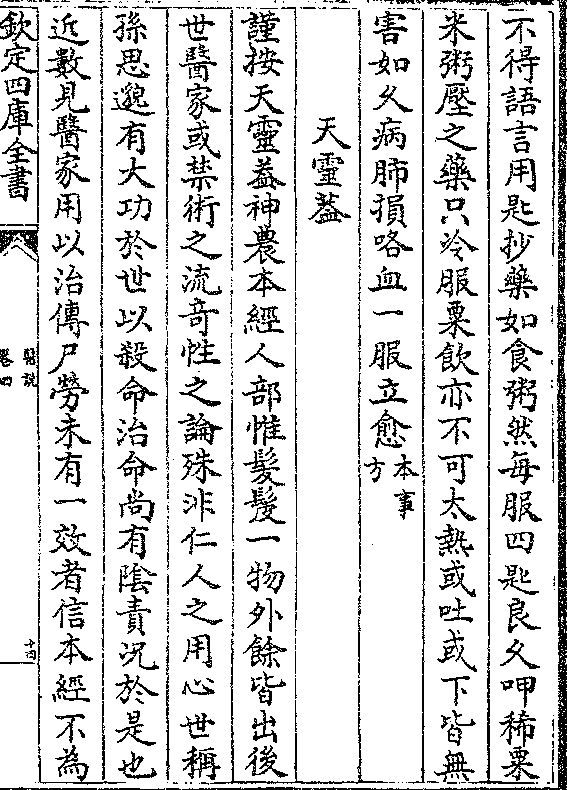 不得語言用匙抄藥如食粥然每服四匙良久呷稀粟
米粥壓之藥只冷服粟飲亦不可太熱或吐或下皆無
害如久病肺損咯血一服立愈本事方
天靈葢
謹按天靈葢神農本經人部惟髮髲一物外餘皆出後
世醫家或禁術之流奇怪之論殊非仁人之用心世稱
孫思邈有大功於世以殺命治命尚有陰責況於是也
近數見醫家用以治傳尸勞未有一效者信本經不為
欽定四庫全書
醫説
卷四
十四